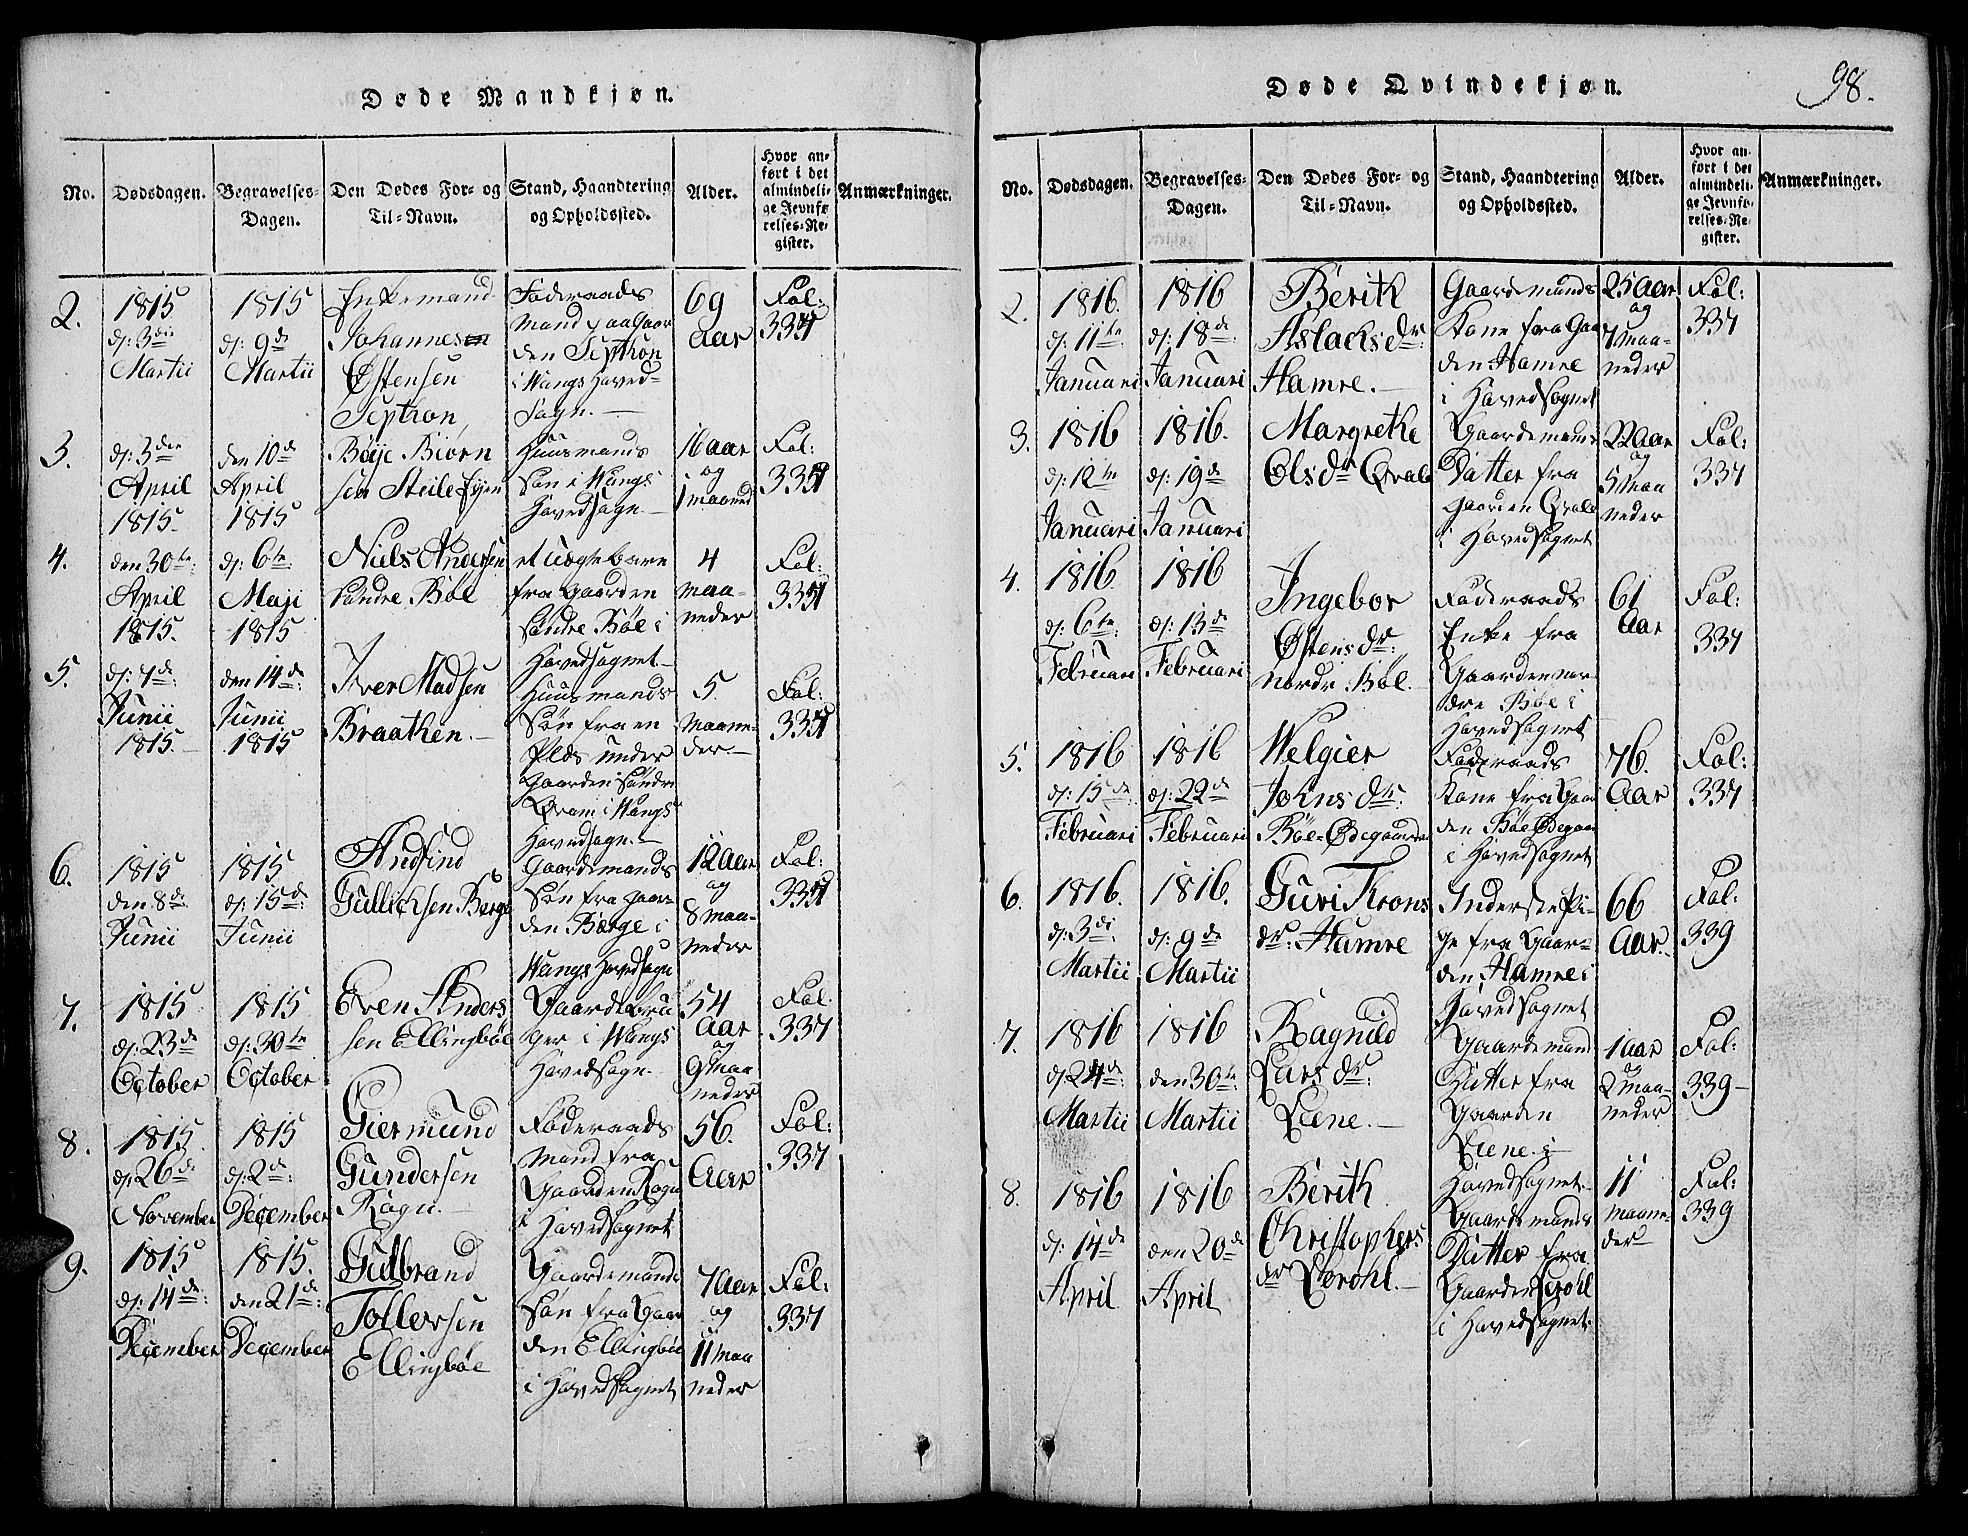 Døde Mandkjøn.
No.
Dødsdagen.
Begravelses-
Dagen.
Den Dødes For- og
Til-Navn.
Stand, Haandtering
og Opholdssted.
Alder.
Hvor an-
ført i det
almindeli-
ge Jevnfø-
relses-Re-
gister.
Anmærkninger.
2.
1815
d: 3die
Martii
1815
d: 9de
Martii
Enkemand
Johannes
Østensen
Septron,
Føderaads
Mand paa Gaar
den Septron
i Wangs Hoved-
Sogn.
69
Aar
Fol:
3.
d: 3die
April
1815
den 10de
April
1815
Bøye Biørn
sen Steile Eyen
Huusmands
Søn i Wangs
Hovedsogn
16 Aar
og
1 maaned
Fol:
4.
den 30te
April
1815.
d: 6te
Maji
1815
Niels Andersen
Søndre Bøe
et uægte barn
fra Gaarden
Søndre Bøe i
Hovedsognet
4
maa-
neder
Fol:
5.
d: 7de
Junii
1815
den 14de
Junii
1815
Iver Madsen
Braathen.
Huusmands
Søn fra en
Plds under
Gaarden Søndre
Qvam i Wangs
Hovedsogn.
5.
Maane-
der.
Fol:
6.
1815
den 8de
Junii
1815
d: 15de
Junii
Andfind
Gullichsen Berge
Gaardemands
Søn fra Gaar
den Berge i
Wangs Hovedsogn
12 Aar
og
8 maa-
neder
Fol:
7.
1815
d: 23de
October
1815
d: 30te
October
Even Anders
sen Ellingbøe
Gaardebru
ger i Wangs
Hovedsogn.
54
Aar
og
9 maa
neder
Fol.
337
8.
1815
d: 26de
November
1815
d: 2de
December
Giermund
Gundersen
Rogn.
Føderaads
mand fra
Gaarden Rogn
i Hovedsognet
56.
Aar
Fol:
337
9.
1815
d: 14de
December
1815.
den 21de
December
Gulbrand
Tollevsen
Ellingbøe
Gaardemands
Søn fra Gaar
den Ellingbøe
i Hovedsognet
7 Aar
og
11 maa
neder
Fol:
337
Døde Qvindekjøn.
98.
No.
Dødsdagen.
Begravelses-
Dagen.
Den Dødes For- og
Til-Navn.
Stand, Haandtering
og Opholdssted.
Alder.
Hvor an-
ført i det
almindeli-
ge Jevnfø-
relses-Re-
gister.
Anmærkninger.
2.
1816.
d: 11te
Januari
1816
d: 18de
Januari
Berith
Aslachs dr
Hamre.
Gaardemands
Kone fra Gaar
den Hamre
i Hovedsognet
25 Aar
og
7 maa-
neder
Fol:
337
3.
1816
d: 12te
Januari
1816.
d: 19de
Januari
Margrethe
Ols dr Qvale
Gaardemands
Datter fra
Gaarden Qvale
i Hovedsognet
22 Aar
og
5 maa
neder
Fol:
337
4.
1816.
d: 6te
Februari
1816
d: 13de
Februari
Ingebor
Østens dr:
Nordre Bøe
Føderaads
Enke fra
Gaarden nor
dre Bøe i
Hovedsognet
61
Aar
Fol:
337
5.
1816
d: 15de
Februari
1816
d: 22de
Februari
Welgier
Johns dr:
Bøe-Ødegaarden
Føderaads
Kone fra Gaar
den Bøe Ødegaar
i Hovedsognet
76.
Aar
Fol:
337
6.
1816.
d: 3di
Martii
1816.
d: 9de
Martii
Guri Trons
dr: Hamre
Inderste Pi-
ge fra Gaar-
den Hamre i
Hovedsognet
66
Aar.
Fol:
339
7.
1816
d: 24de
Martii
1816
den 30te
Martii
Ragnild
Lars dr:
Leene.
Gaardemand
Datter fra
Gaarden
Leene i
Hovedsognet.
1 aar
og
2 maa-
neder
Fol:
339
8.
1816
d: 14de
April
1816
den 20de
April
Berith
Christophers
dr Lerohl.
Gaardemands
Datter fra
Gaarden Lerohl
i Hovedsognet.
11
maane-
der
Fol:
339